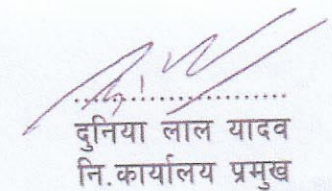 दुनिया लाल यादव
नि.कार्यालय प्रमुख